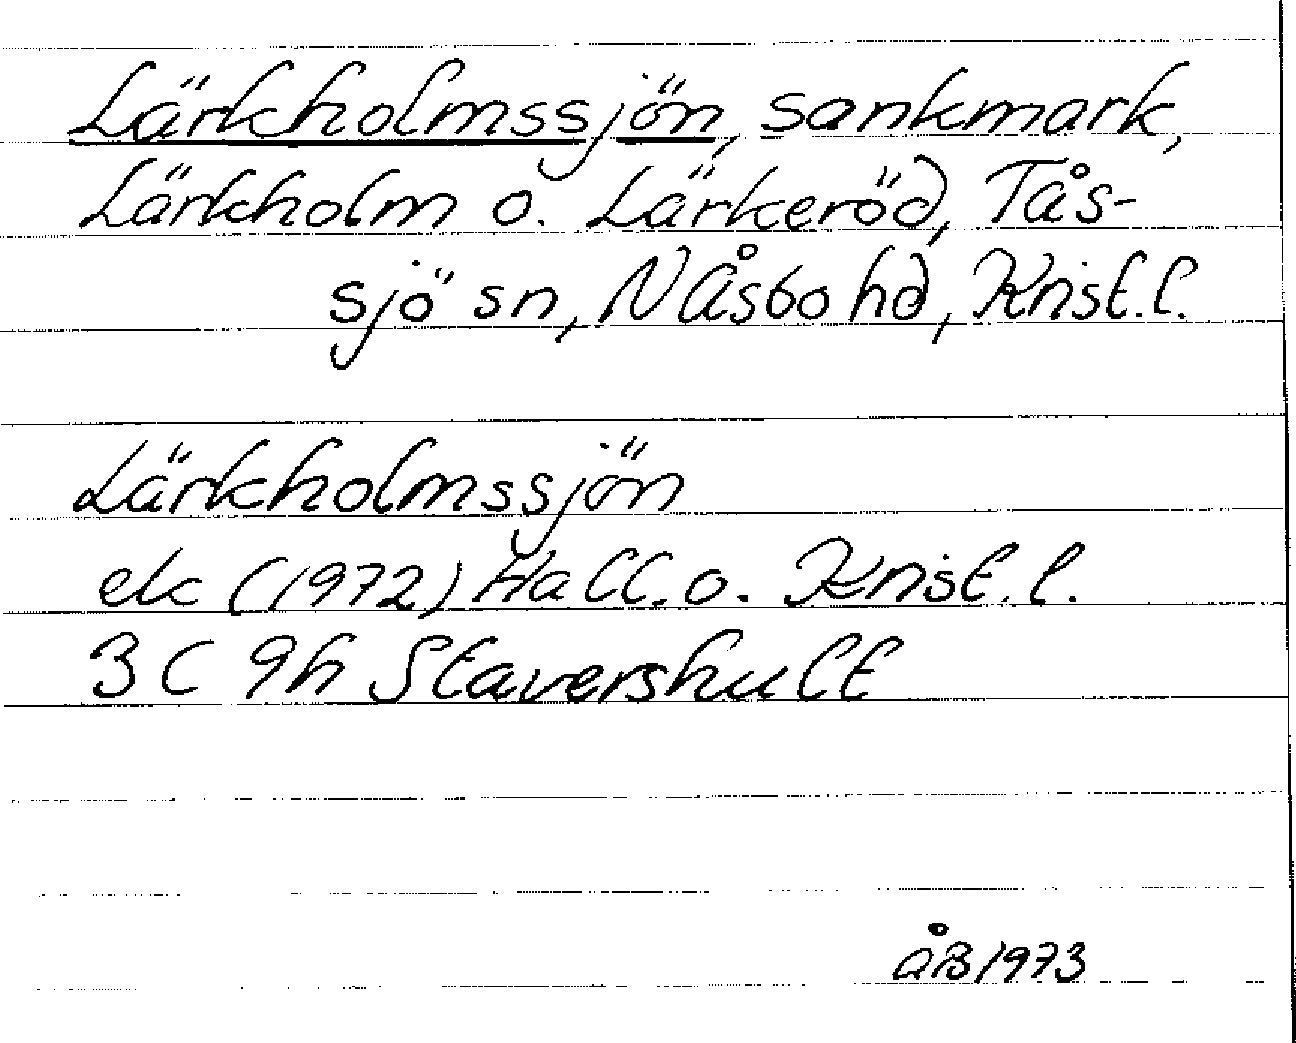 Lärkholmssjön, sankmark,
Lärkholm o. Lärkeröd, Tås-
sjö sn, N Åsbo hd, Krist.l.
Lärkholmssjön
ek (1972) Hall. o. Krist. l.
3 C 9h Stavershult
ÅB 1973